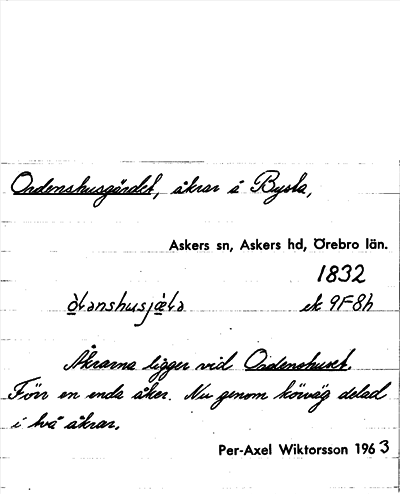 Ordenshusgärdet, åkrar å Bysta,
Askers sn, Askers hd, Örebro län.
1832
ek 9F8h
Åkrarna ligger vid Ordenshuset.
Förr en enda åker. Nu genom körväg delad
i två åkrar.
Per-Axel Wiktorsson 1963